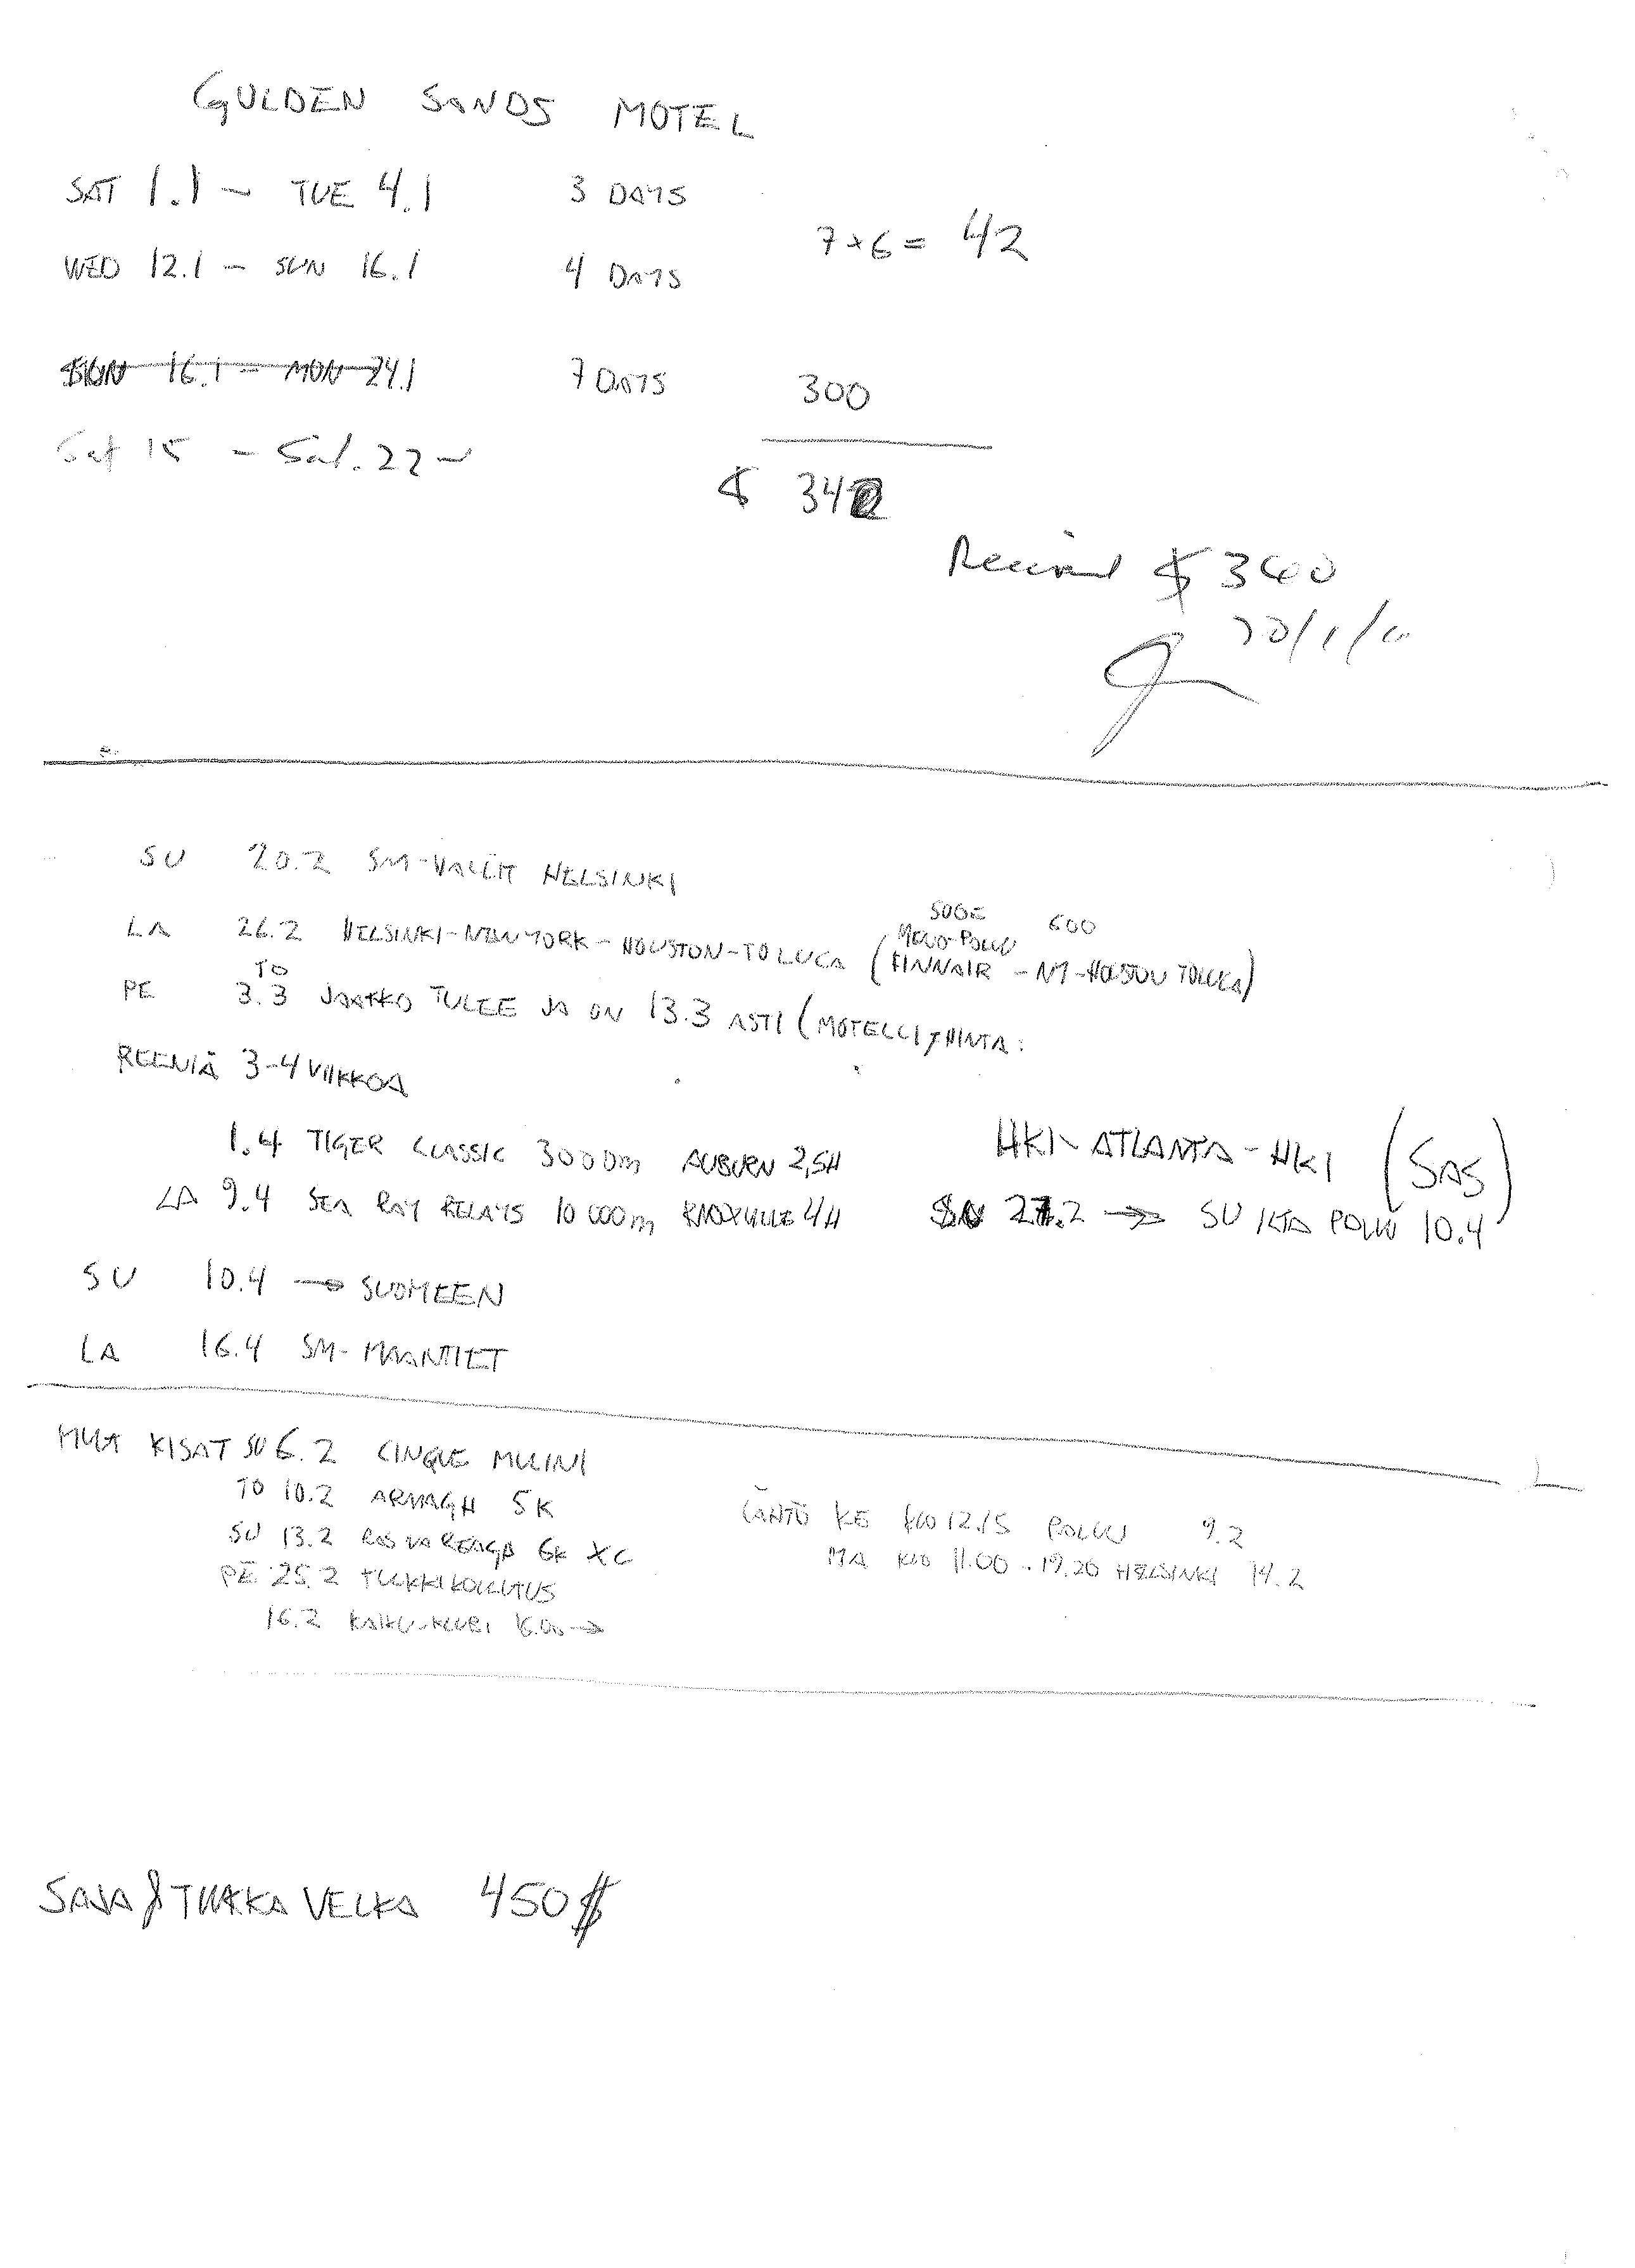 GULDEN SANDS MOTEL
SAT 1.1 – TUE 4.1 3 DAYS
7 × 6 = 42
WED 12.1 – SUN 16.1 4 DAYS
SUN 16.1 – MON 24.1 7 DAYS 300
Sat 15 – Sat. 22
$ 342
Received $ 340
20/1/
SU 20.2 SM-HALLIT HELSINKI
600
MENO-PALUU
LA 26.2 HELSINKI-NEW YORK-HOUSTON-TOLUCA (FINNAIR - NY-HOUSTON TOLUCA)
TO
PE 3.3 JAAKKO TULEE JA ON 13.3 ASTI (MOTELLI, HINTA:
REENIÄ 3-4 VIIKKOA
1.4 TIGER CLASSIC 3000m AUBURN 2,5H
HKI-ATLANTA-HKI (SAS)
LA 9.4 SEA RAY RELAYS 10 000m KNOXVILLE 4H
27.2 → SU ILTA PALUU 10.4
SU 10.4 → SUOMEEN
LA 16.4 SM-MAANTIET
MUUT KISAT SU 6.2 CINQUE MULINI
TO 10.2 ARMAGH 5K
LÄHTÖ KE KLO 12.15 PALUU 9.2
SU 13.2 RAS NA REAGA 6K XC
MA KLO 11.00 - 19.20 HELSINKI 14.2
PE 25.2 TUKKIKOULUTUS
16.2 KAIKU-KLUBI 16.00 →
SAVA & TUKKA VELKA 450$